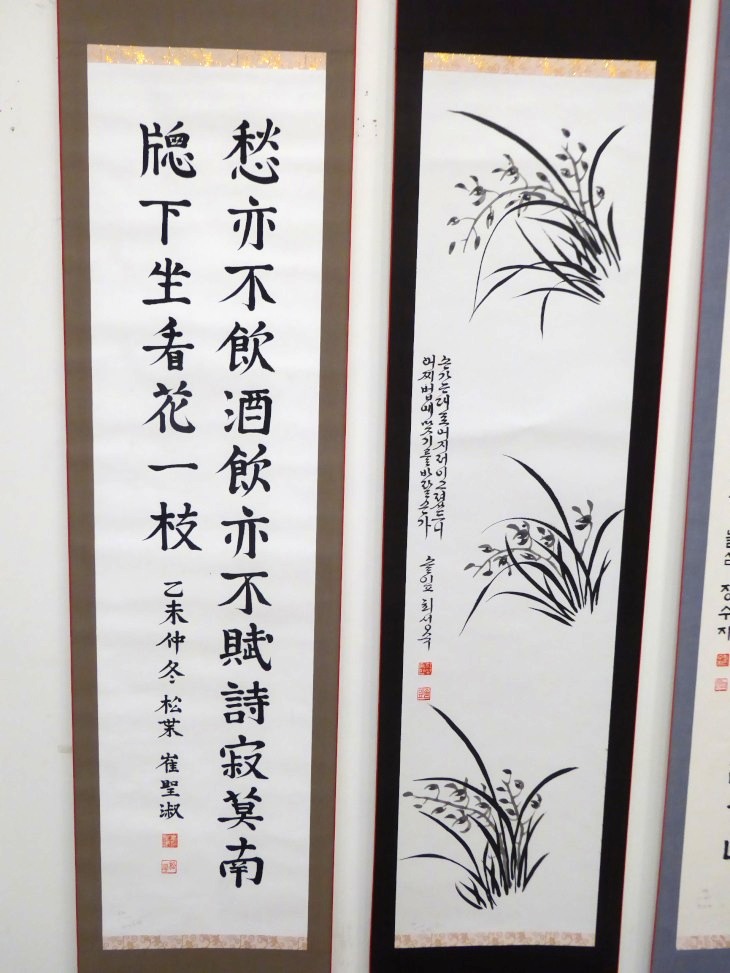 愁亦不飮酒飮亦不賦詩寂莫南
牕下坐看花一枝 乙未仲冬 松葉 崔聖淑
손가는대로어지러이그렸드니
어찌법에맞기를바랄손가 솔잎 최성숙
장수자